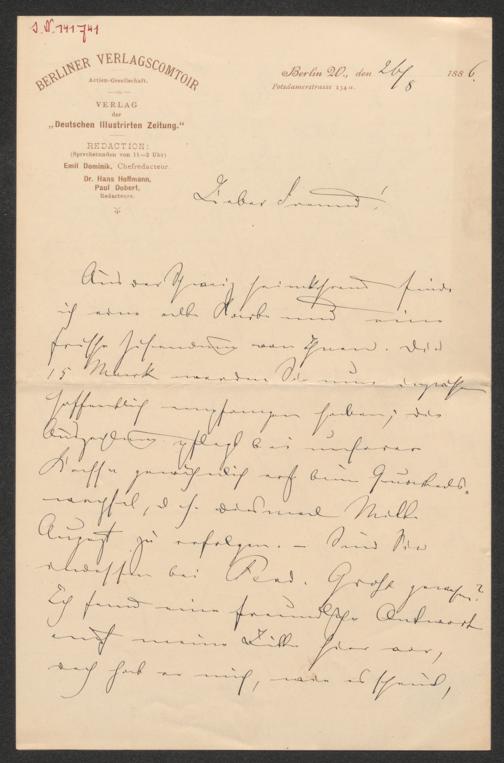 J. N. 141741
BERLINER VERLAGSCOMTOIR
Actien-Gesellschaft.
VERLAG
der
„Deutschen Illustrirten Zeitung.“
REDACTION:
(Sprechstunden von 11—2 Uhr)
Emil Dominik, Chefredacteur.
Dr. Hans Hoffmann,
Paul Dobert,
Redacteure.
Berlin W., den 26/8 1886.
Potsdamerstrasse 134a.
Lieber Freund!
Aus der Schweiz heimkehrend finde
ich eine alte Karte und eine
frische Zusendung von Ihnen. Die
15 Mark werden Sie nun inzwischen
hoffentlich empfangen haben; die
Auszahlung pflegt bei unserer
Kasse gewöhnlich erst beim Quartals-
wechsel, d. h. diesmal Mitte
August zu erfolgen. – Sind Sie
indessen bei Prof. Groth gewesen?
Ich fand eine freundliche Antwort
auf meine Bitte hier vor,
doch hat er mich, wie es scheint,